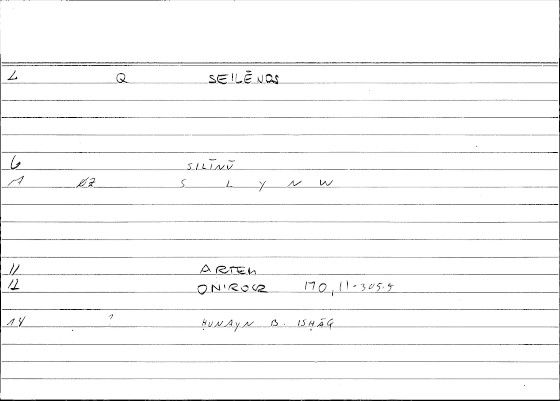 L Q SEILĒNOS
6 SILĪNŪ
1 ØZ S L Y N W
11 ARTEM
12 ONIROCR 170,11-305.5
14 ? ḤUNAYN B. ISḤĀQ